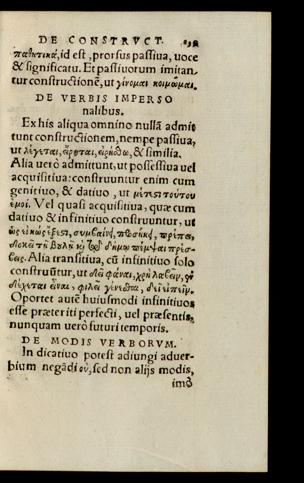 DE CONSTRVCT.
παθητικά, id est, prorsus passiua, uoce
& significatu. Et passiuorum imitan
tur constructionē, ut γίνομαι κοιμῶμαι.
DE VERBIS IMPERSO
nalibus.
Ex his aliqua omnino nullā admit
tunt constructionem, nempe passiua,
ut λέγεται, εἴρηται, εἰρήσθω, & similia.
Alia uerò admittunt, ut possessiua uel
acquisitiua: construuntur enim cum
genitiuo, & datiuo, ut μέτεστι τούτου
ἐμοί. Vel quasi acquisitiua, quæ cum
datiuo & infinitiuo construuntur, ut
συμβαίνει, πρέπει,
δοκεῖ τῇ βουλῇ καὶ τῷ δήμῳ πέμψαι πρέσ-
βεις. Alia transitiua, cū infinitiuo solo
construūtur, ut φάναι, χρὴ λαβεῖν,
ἐνδέχεται εἶναι, φιλεῖ γίνεσθαι, δεῖ εἰπεῖν.
Oportet autē huiusmodi infinitiuos
esse præteriti perfecti, uel præsentis,
nunquam uerò futuri temporis.
DE MODIS VERBORVM.
In dicatiuo potest adiungi aduer-
bium negādi οὐ, sed non alijs modis,
imò